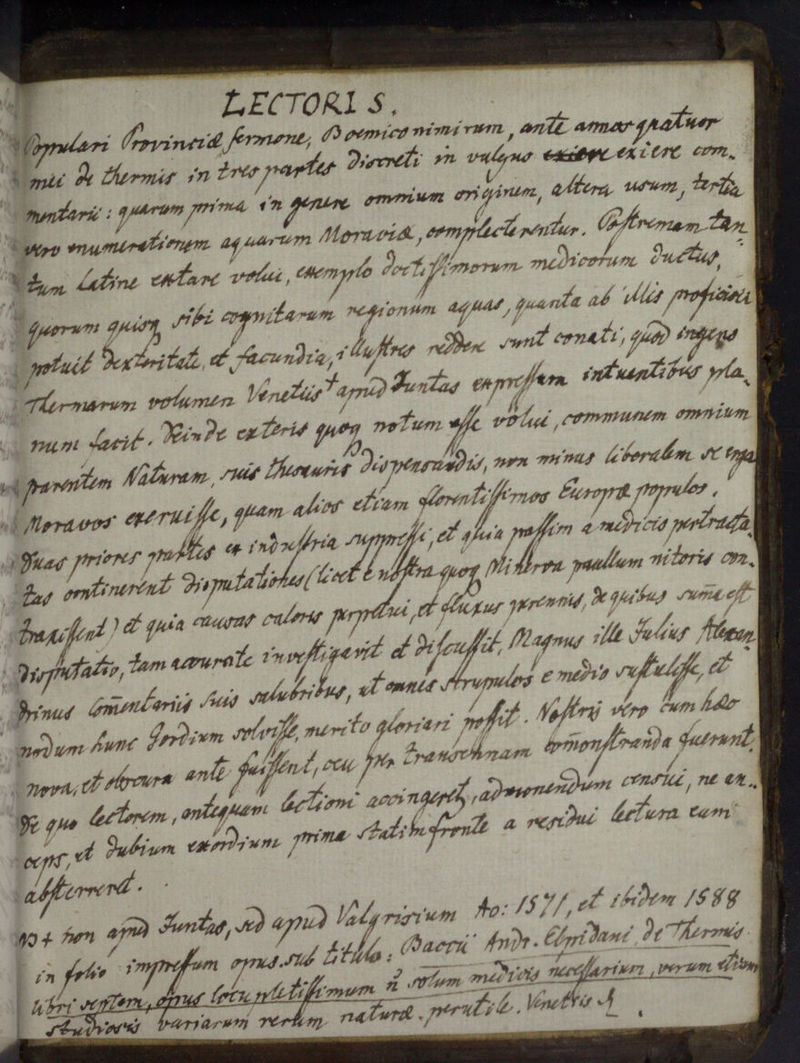 LECTORIS.
Populari Provinciæ sermone, Boemico nimirum, ante annos quatuor
mei de thermis in tres partes discreti in vulgus exiere exiere com-
mentarii: quarum prima in genere omnium originem, altera usum, tertia
vero enumerationem aquarum Moraviæ, complecterentur. Postremam tan-
tum Latine extare volui, exemplo doctissimorum medicorum ductus,
quorum quisq sibi cognitarum regionum aquas, quanta ab illis proficisci
potuit dexteritate, et facundia, illustres reddere sunt conati, quod ingens
Thermarum volumen Venetiis† apud Juntas expressum intuentibus pla-
num facit. Deinde exteris quoq notum esse volui, communem omnium
parentem Naturam, suis thesauris dispensandis, non minus liberalem se erga
Moravos exeruisse, quam alios etiam florentissimos Europæ populos.
Duas priores partes ex industria suppressi, et quia passim a medicis pertracta-
tas continerent disputationes (licet e nostra quoq Minerva paullum nitoris con-
traxissent) et quia causas caloris perpetui, et fluxus perennis, de quibus suma est
disputatio, tam accurate investigavit et discussit, Magnus ille Julius Alexan
drinus Comentariis suis salubribus, ut omnes scrupulos e medio sustulisse, et
nodum hunc Gordium solvisse, merito gloriari possit. Nostris vero cum hæc
nova, et obscura ante fuissent, ceu per transennam comonstranda fuerunt.
De quo lectorem, antequam lectioni accingeret, admonendum censui, ne an-
ceps, et dubium exordium prima statim fronte a residui lectura eum
absterreret.
NB + non apud Juntas, sed apud Valgrisium Ao: 1571, et ibidem 1588
in folio impressum opus sub titulo: Baccii Andr. Elpidani de Thermis
libri septem, opus locupletissimum n̄ solum medicis necessarium, verum etiam
studiosis variarum rerum naturæ perutile. Venetiis